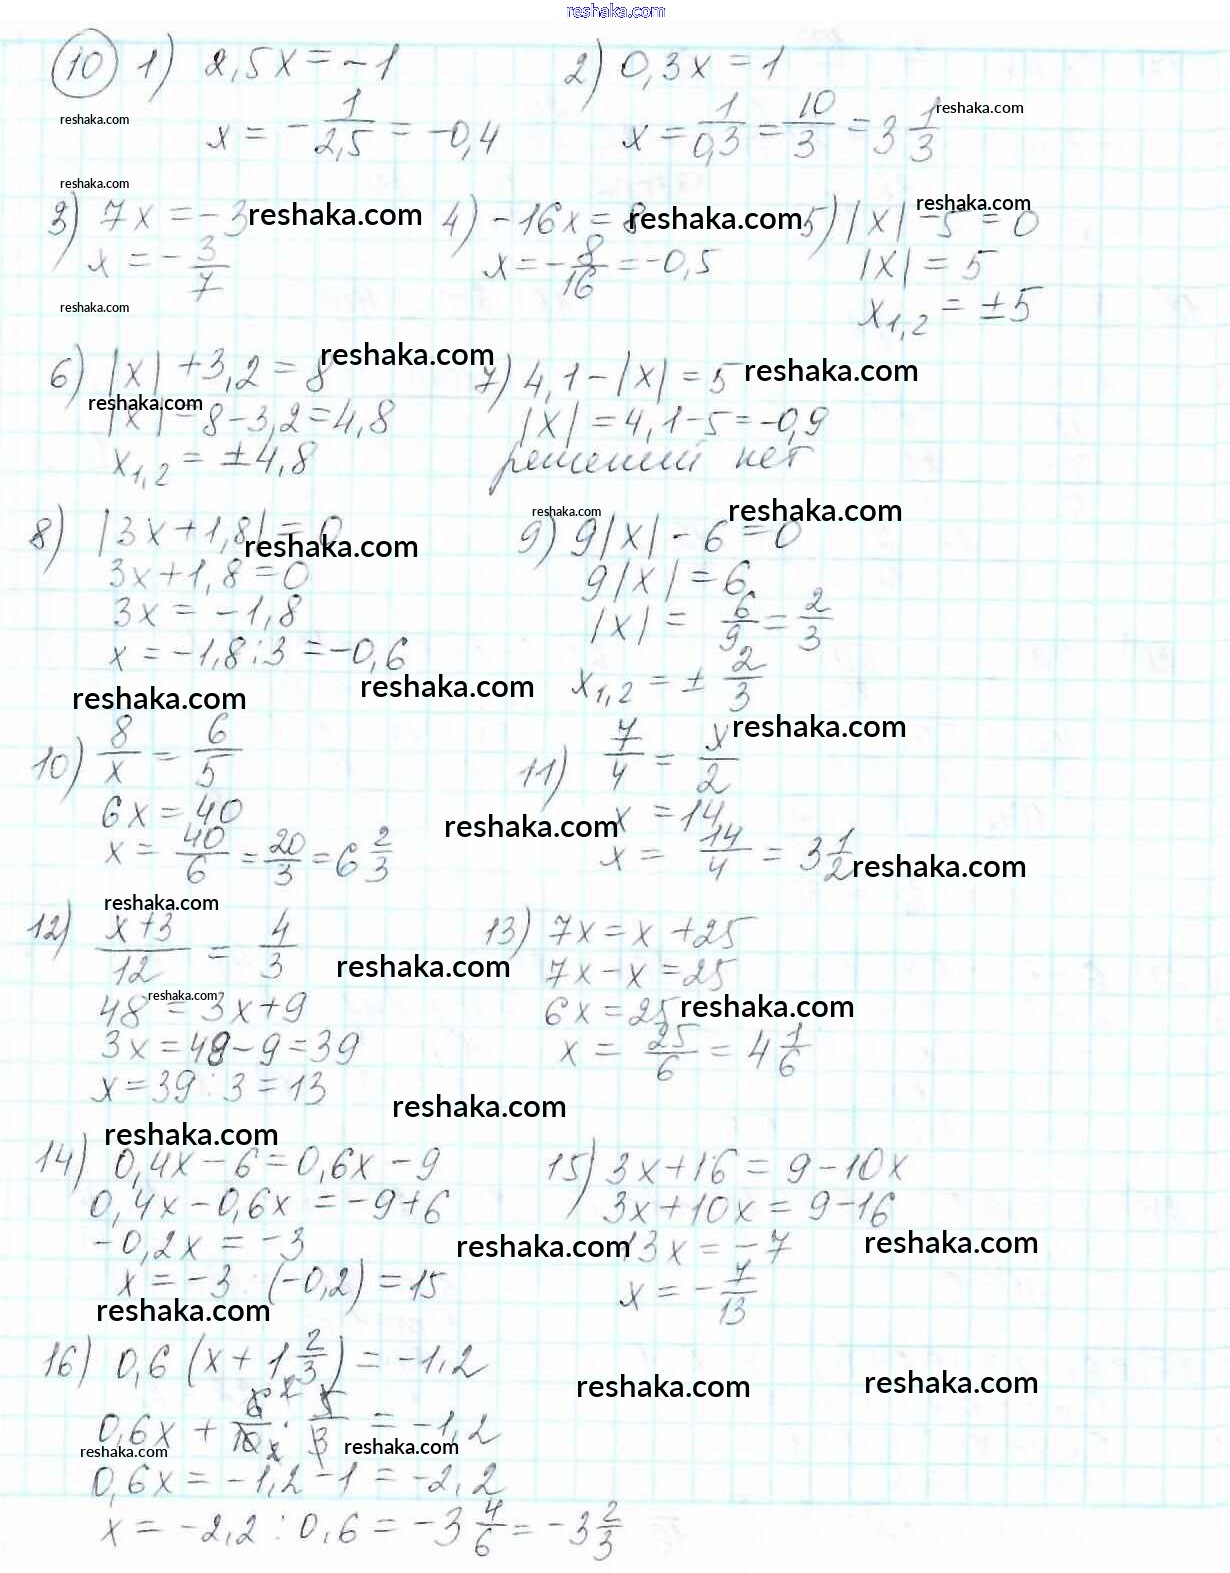 reshaka.com
10 1) 2,5x = -1 2) 0,3x = 1
reshaka.com reshaka.com
x = - 1/2,5 = -0,4 x = 1/0,3 = 10/3 = 3 1/3
reshaka.com
3) 7x = -3 reshaka.com 4) -16x = 8 reshaka.com 5) |x| - 5 = 0 reshaka.com
x = - 3/7 x = - 8/16 = -0,5 |x| = 5
reshaka.com x1,2 = ±5
6) |x| + 3,2 = 8 reshaka.com 7) 4,1 - |x| = 5 reshaka.com
reshaka.com |x| = 8 - 3,2 = 4,8 |x| = 4,1 - 5 = -0,9
x1,2 = ±4,8 решений нет
reshaka.com reshaka.com
8) |3x + 1,8| = 0 reshaka.com 9) 9|x| - 6 = 0
3x + 1,8 = 0 9|x| = 6
3x = -1,8 |x| = 6/9 = 2/3
x = -1,8 : 3 = -0,6 x1,2 = ± 2/3
reshaka.com reshaka.com
10) 8/x = 6/5 11) 7/4 = x/2 reshaka.com
6x = 40 reshaka.com x = 14
x = 40/6 = 20/3 = 6 2/3 x = 14/4 = 3 1/2 reshaka.com
reshaka.com
12) x+3/12 = 4/3 reshaka.com 13) 7x = x + 25
7x - x = 25
48 = 3x + 9 reshaka.com 6x = 25 reshaka.com
3x = 48 - 9 = 39 x = 25/6 = 4 1/6
x = 39 : 3 = 13
reshaka.com reshaka.com
14) 0,4x - 6 = 0,6x - 9 15) 3x + 16 = 9 - 10x
0,4x - 0,6x = -9 + 6 3x + 10x = 9 - 16
-0,2x = -3 reshaka.com 13x = -7 reshaka.com
x = -3 : (-0,2) = 15 x = - 7/13
reshaka.com
16) 0,6 (x + 1 2/3) = -1,2
reshaka.com reshaka.com
0,6x + 6/10 · 5/3 = -1,2
reshaka.com reshaka.com
0,6x = -1,2 - 1 = -2,2
x = -2,2 : 0,6 = -3 4/6 = -3 2/3